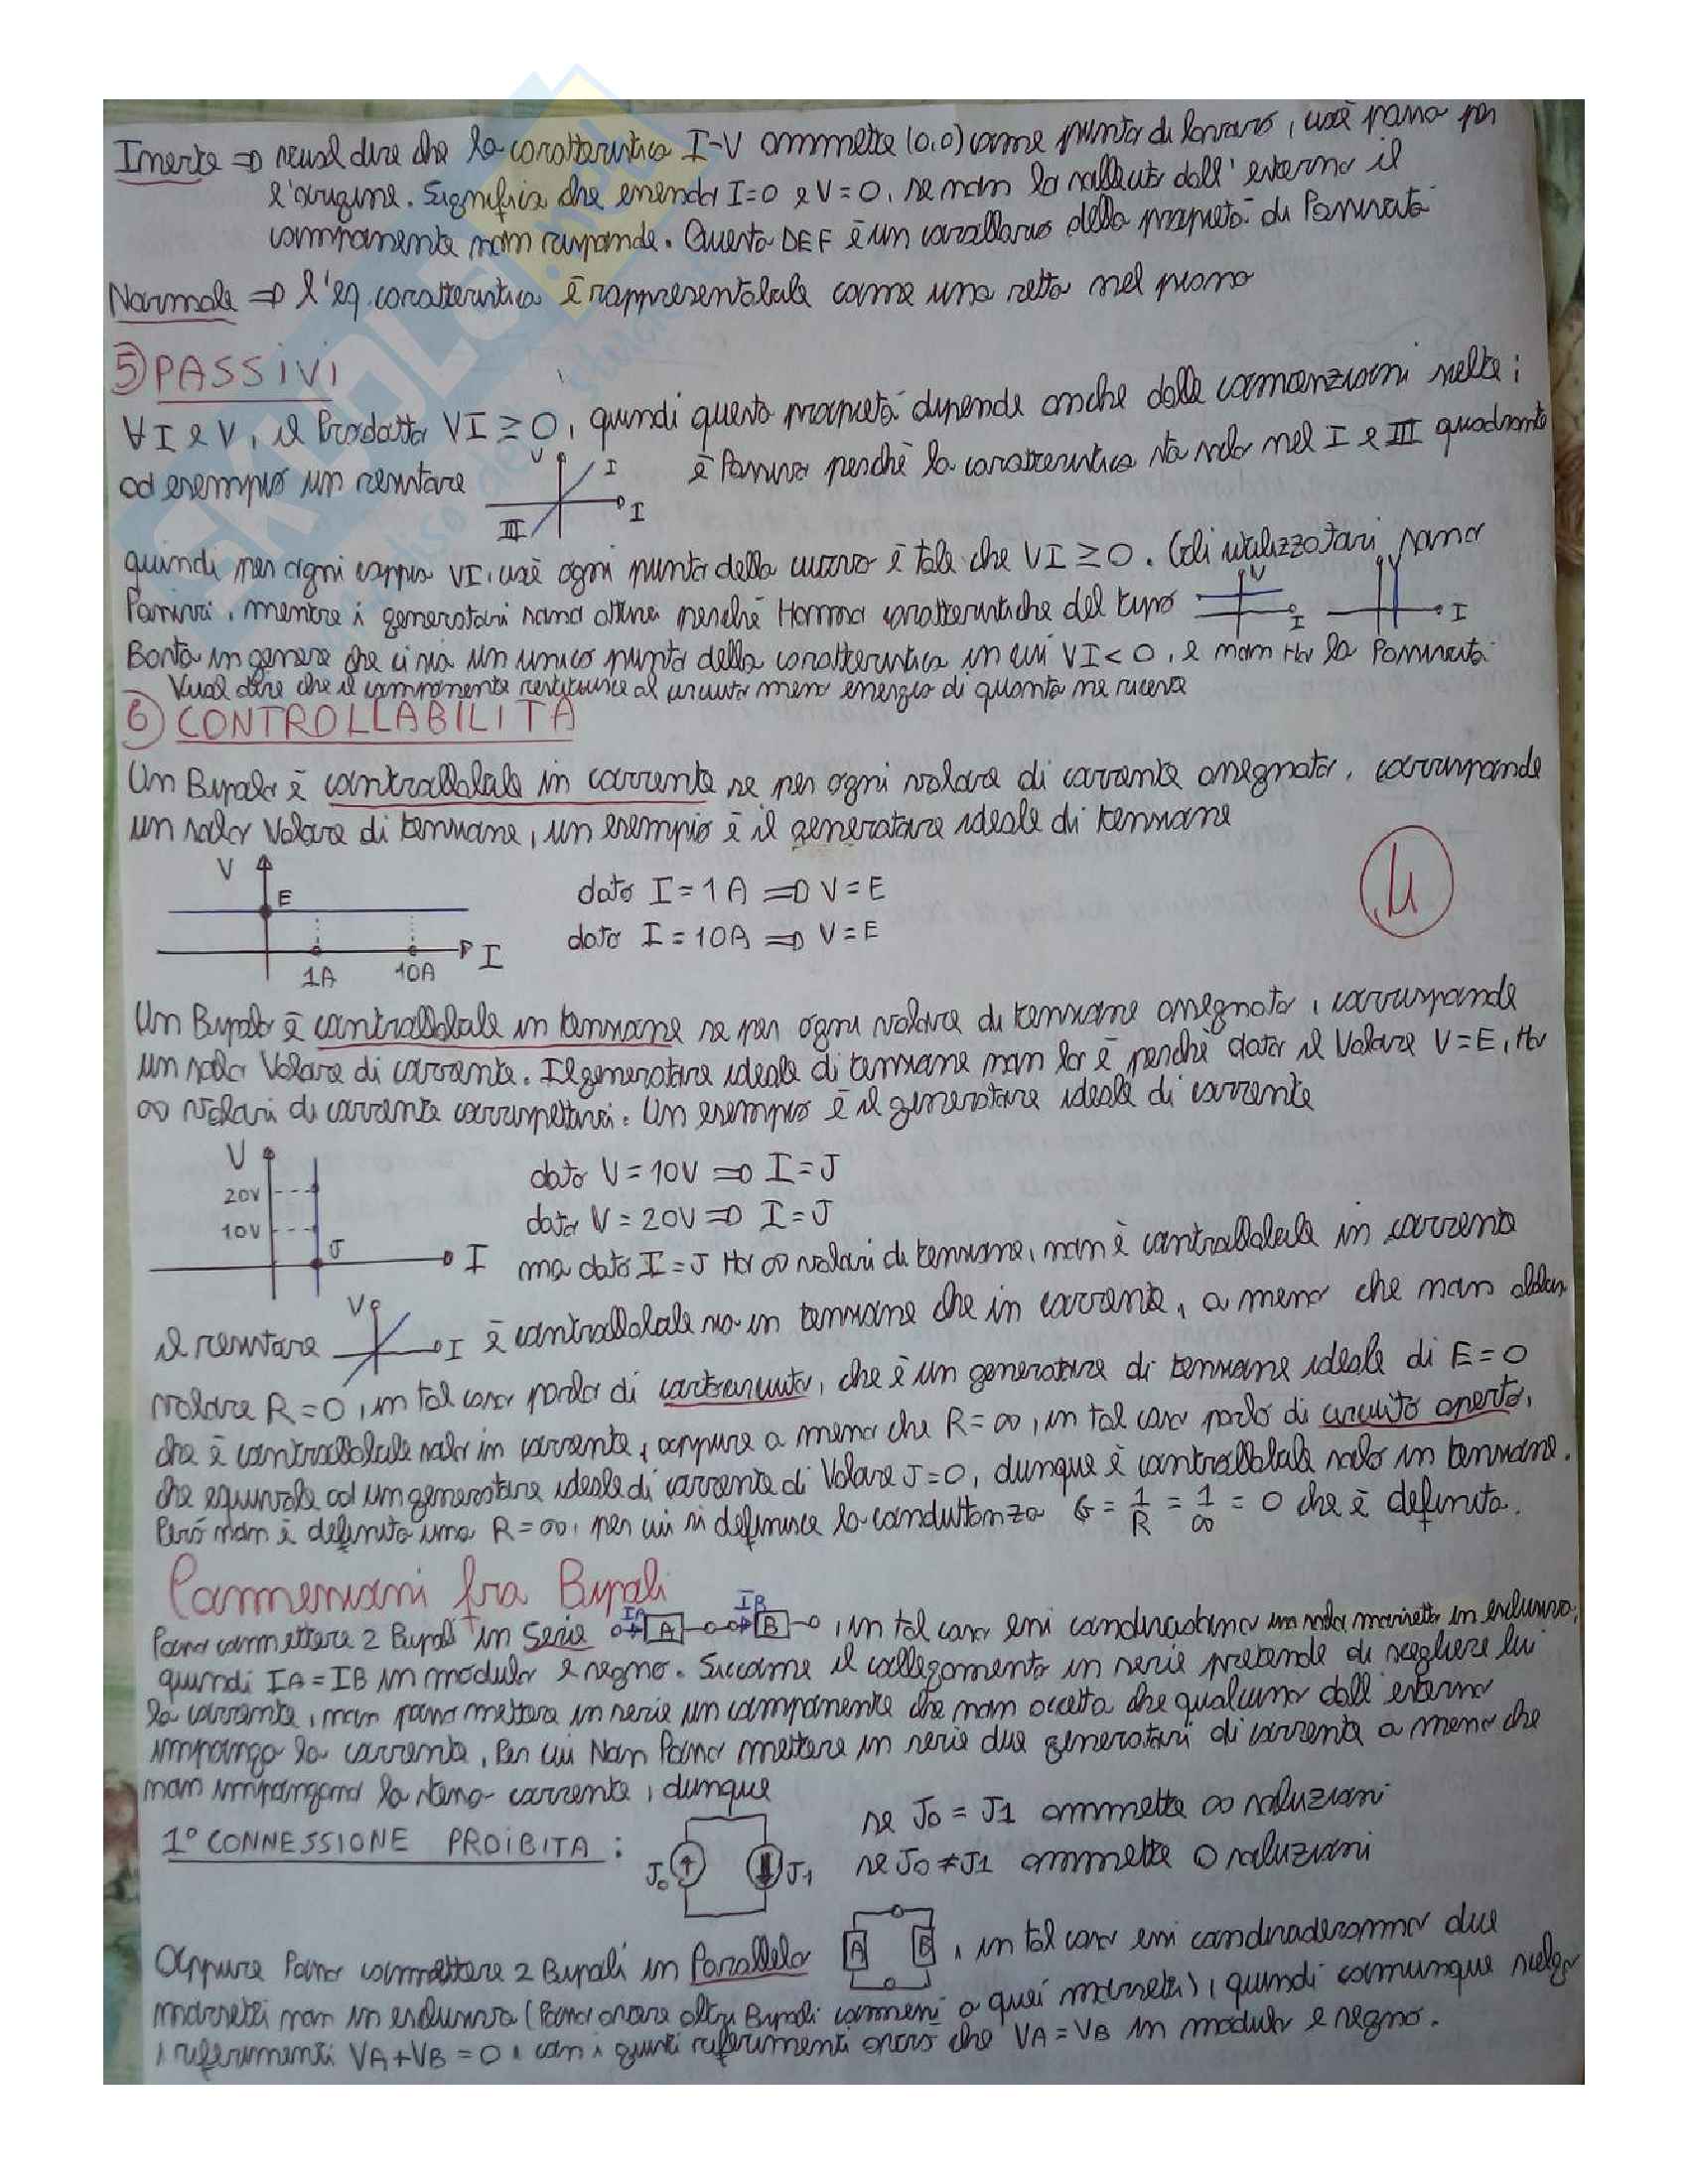 Inerte => vuol dire che la caratteristica I-V ammette (0,0) come punto di lavoro, cioè passa per
l'origine. Significa che essendo I=0 e V=0, se non lo sollecito dall'esterno il
componente non risponde. Questa DEF è un corollario della proprietà di Passività
Normale => l'eq. caratteristica è rappresentabile come una retta nel piano
5) PASSIVI
∀ I e V, il Prodotto VI ≥ 0, quindi questa proprietà dipende anche dalle convenzioni scelte;
ad esempio un resistore V I I III è Passivo perché la caratteristica sta solo nel I e III quadrante
quindi per ogni coppia VI, cioè ogni punto della curva è tale che VI ≥ 0. Gli utilizzatori sono
Passivi, mentre i generatori sono attivi perché Hanno caratteristiche del tipo V I V I
Basta in genere che ci sia un unico punto della caratteristica in cui VI < 0, e non Ho la Passività
Vuol dire che il componente restituisce al circuito meno energia di quanta ne riceve
6) CONTROLLABILITÀ
Un Bipolo è controllabile in corrente se per ogni valore di corrente assegnato, corrisponde
un solo Valore di tensione, un esempio è il generatore ideale di tensione
V E I 1A 10A
dato I = 1A => V = E
dato I = 10A => V = E
4
Un Bipolo è controllabile in tensione se per ogni valore di tensione assegnato, corrisponde
un solo Valore di corrente. Il generatore ideale di tensione non lo è perché dato il Valore V = E, Ho
∞ valori di corrente corrispettivi. Un esempio è il generatore ideale di corrente
V 20V 10V J I
dato V = 10V => I = J
dato V = 20V => I = J
ma dato I = J Ho ∞ valori di tensione, non è controllabile in corrente
il resistore V I è controllabile sia in tensione che in corrente, a meno che non abbia
valore R = 0, in tal caso parlo di cortocircuito, che è un generatore di tensione ideale di E = 0
che è controllabile solo in corrente, oppure a meno che R = ∞, in tal caso parlo di circuito aperto,
che equivale ad un generatore ideale di corrente di Valore J = 0, dunque è controllabile solo in tensione.
Però non è definita una R = ∞, per cui si definisce la conduttanza G = 1/R = 1/∞ = 0 che è definita.
Connessioni fra Bipoli
Posso connettere 2 Bipoli in Serie IA A IB B, in tal caso essi condividono un solo morsetto in esclusiva,
quindi IA = IB in modulo e segno. Siccome il collegamento in serie pretende di scegliere lui
la corrente, non posso mettere in serie un componente che non accetta che qualcuno dall'esterno
imponga la corrente, Per cui Non Posso mettere in serie due generatori di corrente a meno che
non impongano la stessa corrente, dunque
1° CONNESSIONE PROIBITA: J0 J1
se J0 = J1 ammette ∞ soluzioni
se J0 ≠ J1 ammette 0 soluzioni
Oppure Posso connettere 2 Bipoli in Parallelo A B, in tal caso essi condivideranno due
morsetti non in esclusiva (Posso avere altri Bipoli connessi a quei morsetti), quindi comunque scelgo
i riferimenti VA+VB = 0, con i giusti riferimenti avrò che VA = VB in modulo e segno.